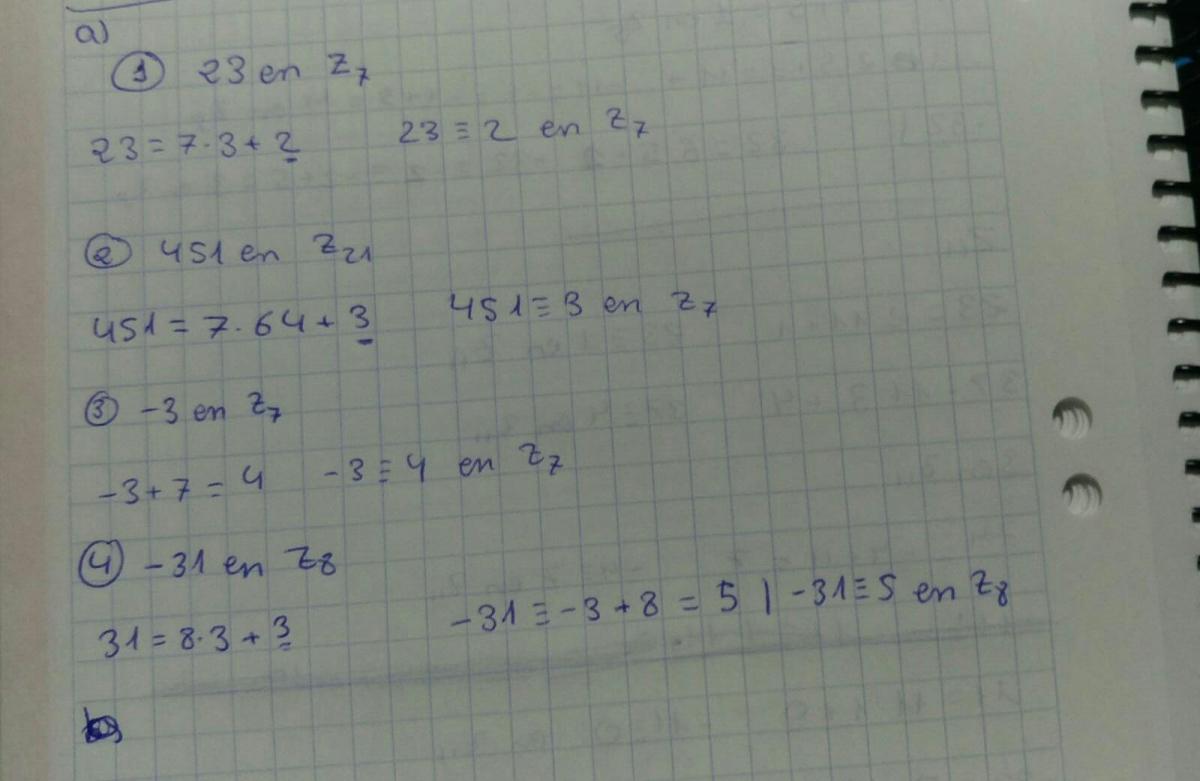 a)
① 23 en Z₇
23 = 7·3 + 2 23 ≡ 2 en Z₇
② 451 en Z₂₁
451 = 7·64 + 3 451 ≡ 3 en Z₇
③ -3 en Z₇
-3 + 7 = 4 -3 ≡ 4 en Z₇
④ -31 en Z₈
31 = 8·3 + 3 -31 ≡ -3 + 8 = 5 | -31 ≡ 5 en Z₈